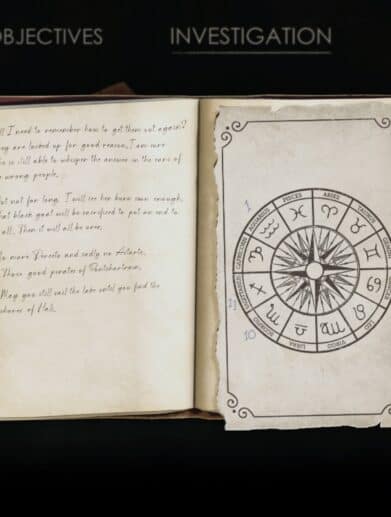 OBJECTIVES INVESTIGATION
ll I need to remember how to get them out again?
ey are locked up for good reason, I am sure
is still able to whisper the answer in the ears of
wrong people.
ut not for long. I will see her burn soon enough.
hat black goat will be sacrificed to put an end to
all. Then it will all be over.
more and sadly no Astarte.
Those good pirates of Pontchartrain.
May you still sail the lake until you find the
shores of Hali.
1
11
10
PISCES
ARIES
TAURUS
LEO
VIRGO
LIBRA
SCORPIO
SAGITTARIUS
CAPRICORN
AQUARIUS